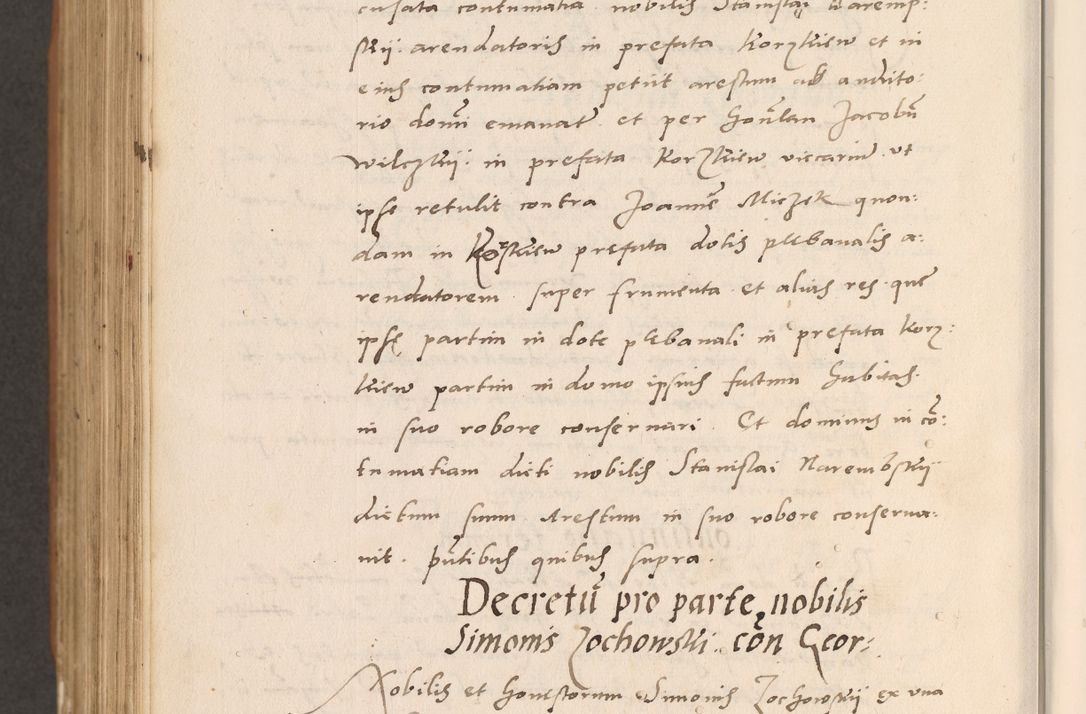 cusata contumatia nobilis Stanislaj Naremp:
skij arendatoris in prefata Korzkiew et in
eius contumatiam petiit arestum ab audito:
rio domi emanatu et per honlem Jacobu
Wilczkij in prefata Korzkiew viccariu ut
ipse retulit contra Joanne Miczek quon:
dam in Korzkiew prefata dotis plebanalis a:
rendatorem super frumenta et alias res que
ipse partim in dote plebanali in prefata Korz:
kiew partim in domo ipsius factum habitas
in suo robore conservari. Et dominus in co:
tumatiam dicti nobilis Stanislai Narembskij
dictum suum arestum in suo robore conserva:
vit. putibus quibus supra.
Decretu pro parte nobilis
Simonis Zochowski con Geor:
Nobilis et honestorum Simonis Zochowskij ex una